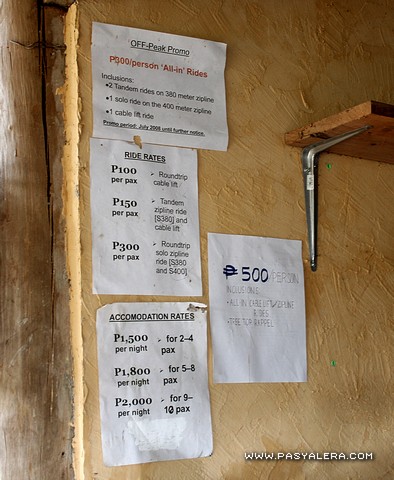 OFF-Peak Promo
P300/person 'All-in' Rides
Inclusions:
•2 Tandem rides on 380 meter zipline
•1 solo ride on the 400 meter zipline
•1 cable lift ride
Promo period: July 2008 until further notice.
RIDE RATES
P100 per pax ➢ Roundtrip cable lift
P150 per pax ➢ Tandem zipline ride [S380] and cable lift
P300 per pax ➢ Roundtrip solo zipline ride [S380 and S400]
₱ 500/PERSON
INCLUSIONS:
-ALL-IN CABLE LIFT/ZIPLINE
RIDES
-TREE TOP RAPPEL
ACCOMODATION RATES
P1,500 per night ➢ for 2–4 pax
P1,800 per night ➢ for 5–8 pax
P2,000 per night ➢ for 9–10 pax
WWW.PASYALERA.COM